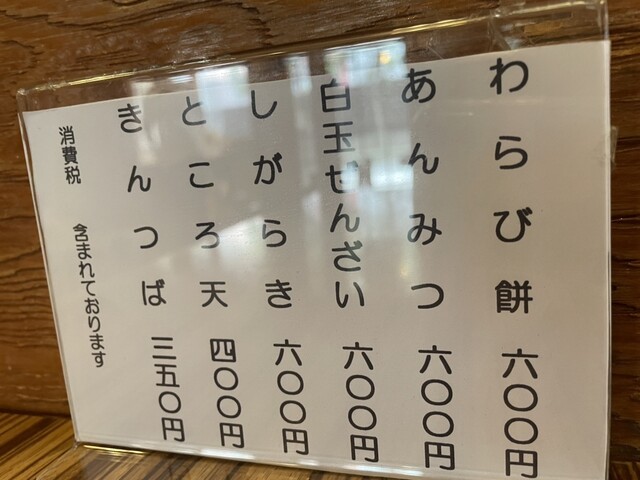 わらび餅 六〇〇円
あんみつ 六〇〇円
白玉ぜんざい 六〇〇円
しがらき 六〇〇円
ところ天 四〇〇円
きんつば 三五〇円
消費税 含まれております